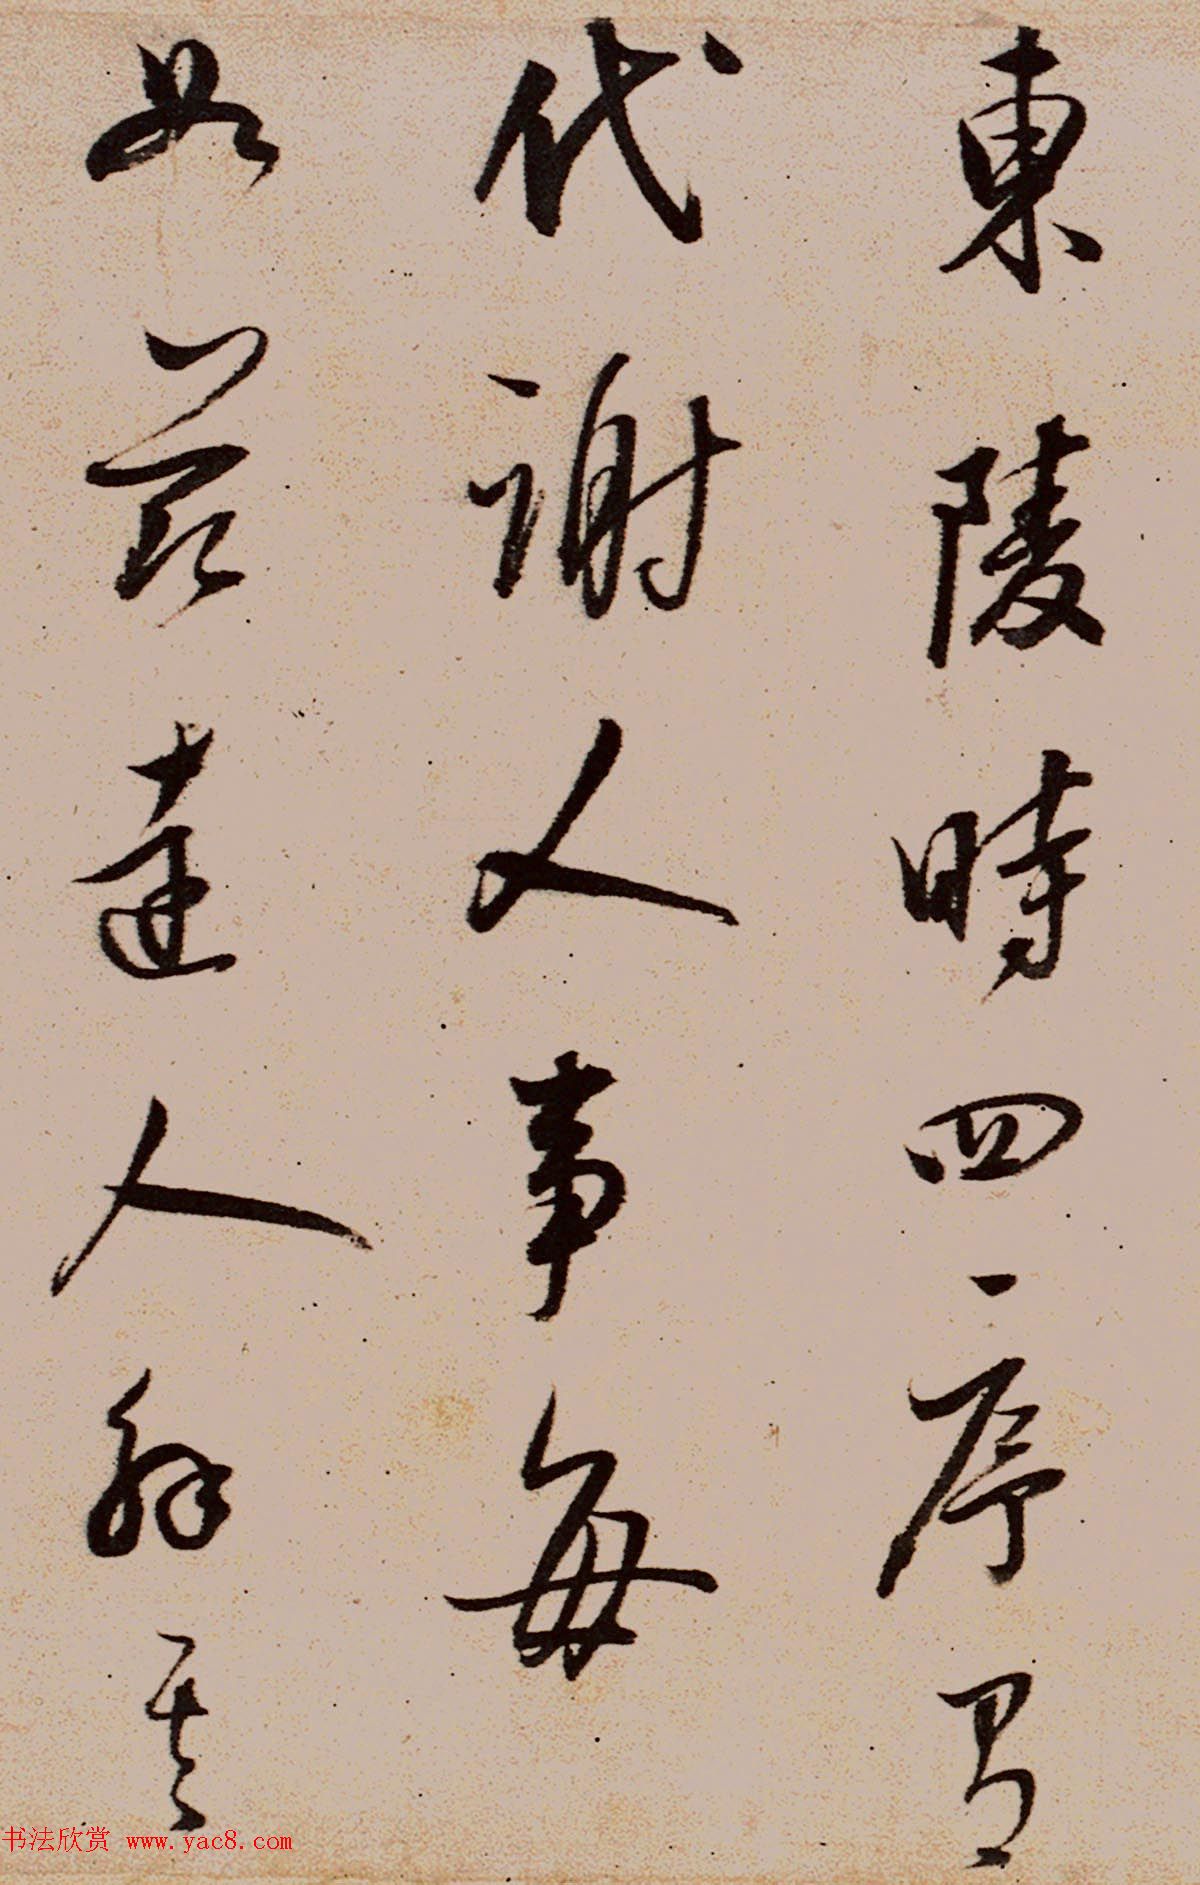 東陵時四序有
代謝人事每
如茲達人解其
书法欣赏 www.yac8.com